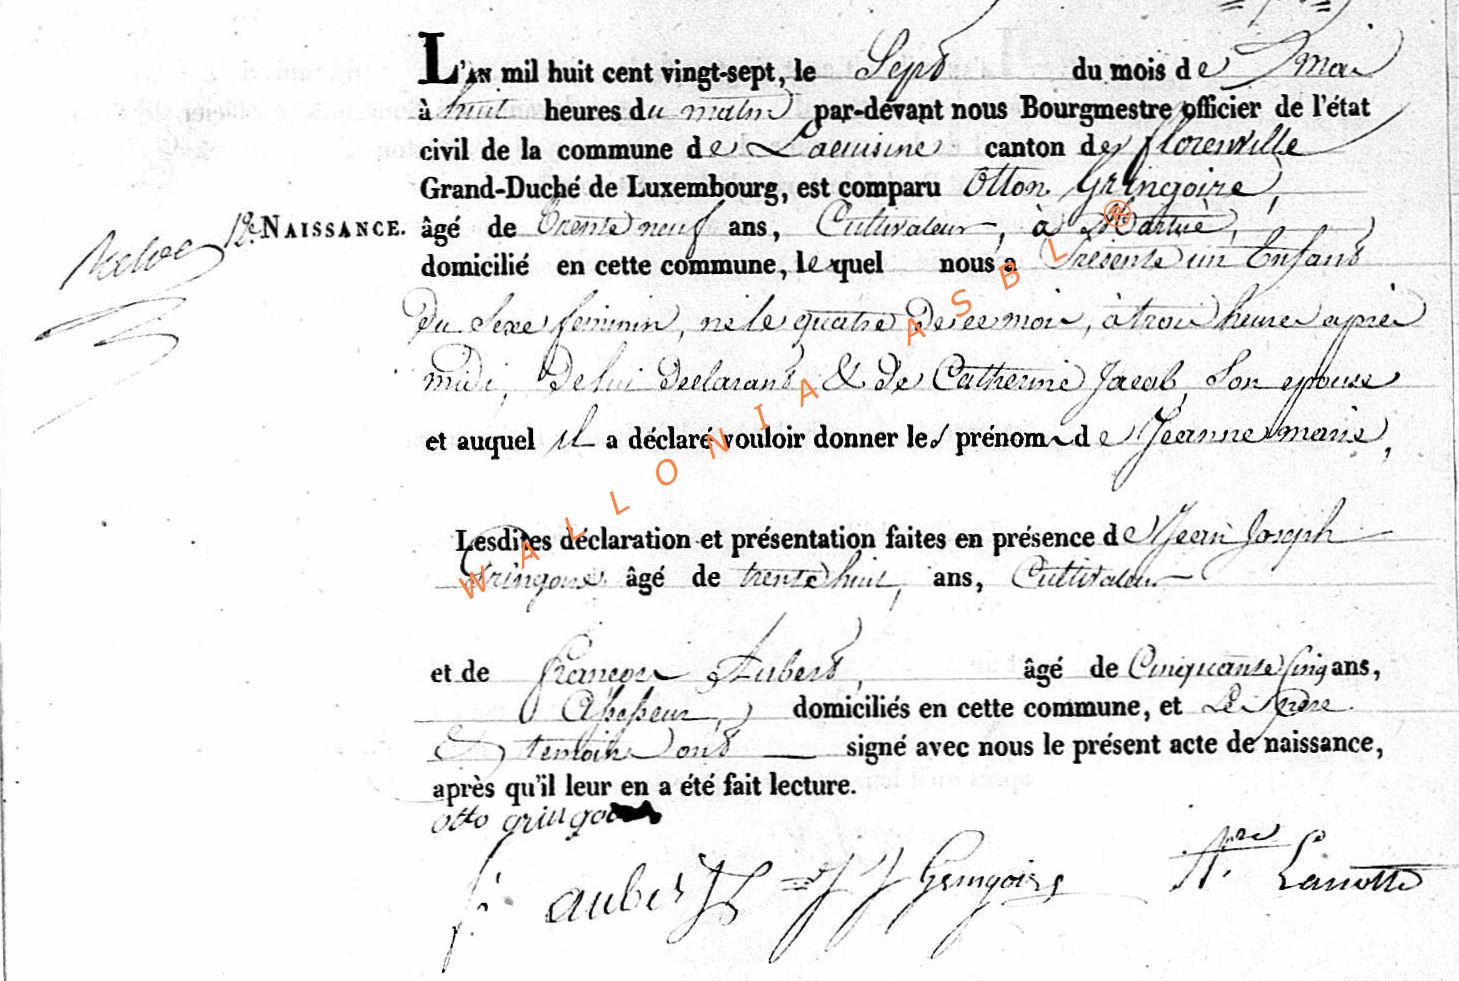 L'AN mil huit cent vingt-sept, le Sept du mois de mai
à huit heures du matin par-devant nous Bourgmestre officier de l'état
civil de la commune de Lacuisine canton de florenville
Grand-Duché de Luxembourg, est comparu Otton Gringoire,
12e NAISSANCE. âgé de trente neuf ans, Cultivateur, à Martué,
domicilié en cette commune, lequel nous a Présenté un Enfant
du Sexe féminin, né le quatre de ce mois, à trois heures après
midi, de lui déclarant & de Catherine Jacob, Son épouse
et auquel il a déclaré vouloir donner les prénoms de Jeanne marie,
Lesdites déclaration et présentation faites en présence de Jean Joseph
Gringoire âgé de trente huit, ans, Cultivateur
et de françois Aubert, âgé de Cinquante Cinq ans,
Assesseur, domiciliés en cette commune, et Le Père
Et témoins ont signé avec nous le présent acte de naissance,
après qu'il leur en a été fait lecture.
otto gringoi
f. aubert J J Gringoire Lanotte
WALLONIA ASBL ®